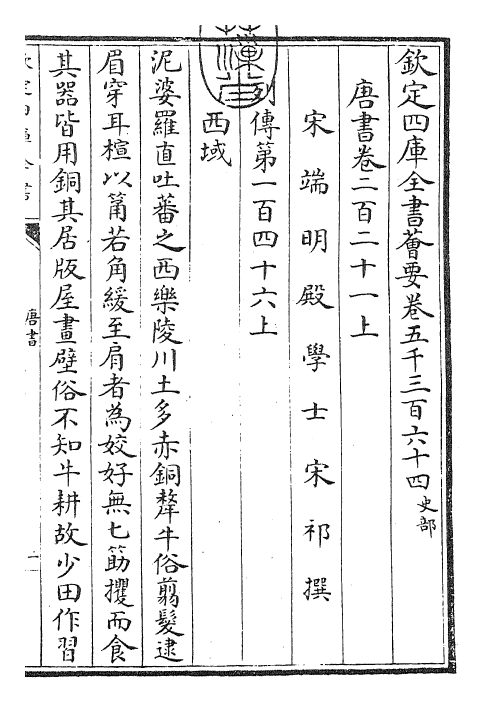 欽定四庫全書薈要卷五千三百六十四 史部
唐書卷二百二十一上
宋端明殿學士宋祁撰
列傳第一百四十六上
西域
泥婆羅直吐蕃之西樂陵川土多赤銅犛牛俗翦髮逮
眉穿耳楦以筩若角緩至肩者為姣好無匕筯攫而食
其器皆用銅其居版屋畫壁俗不知牛耕故少田作習
唐書